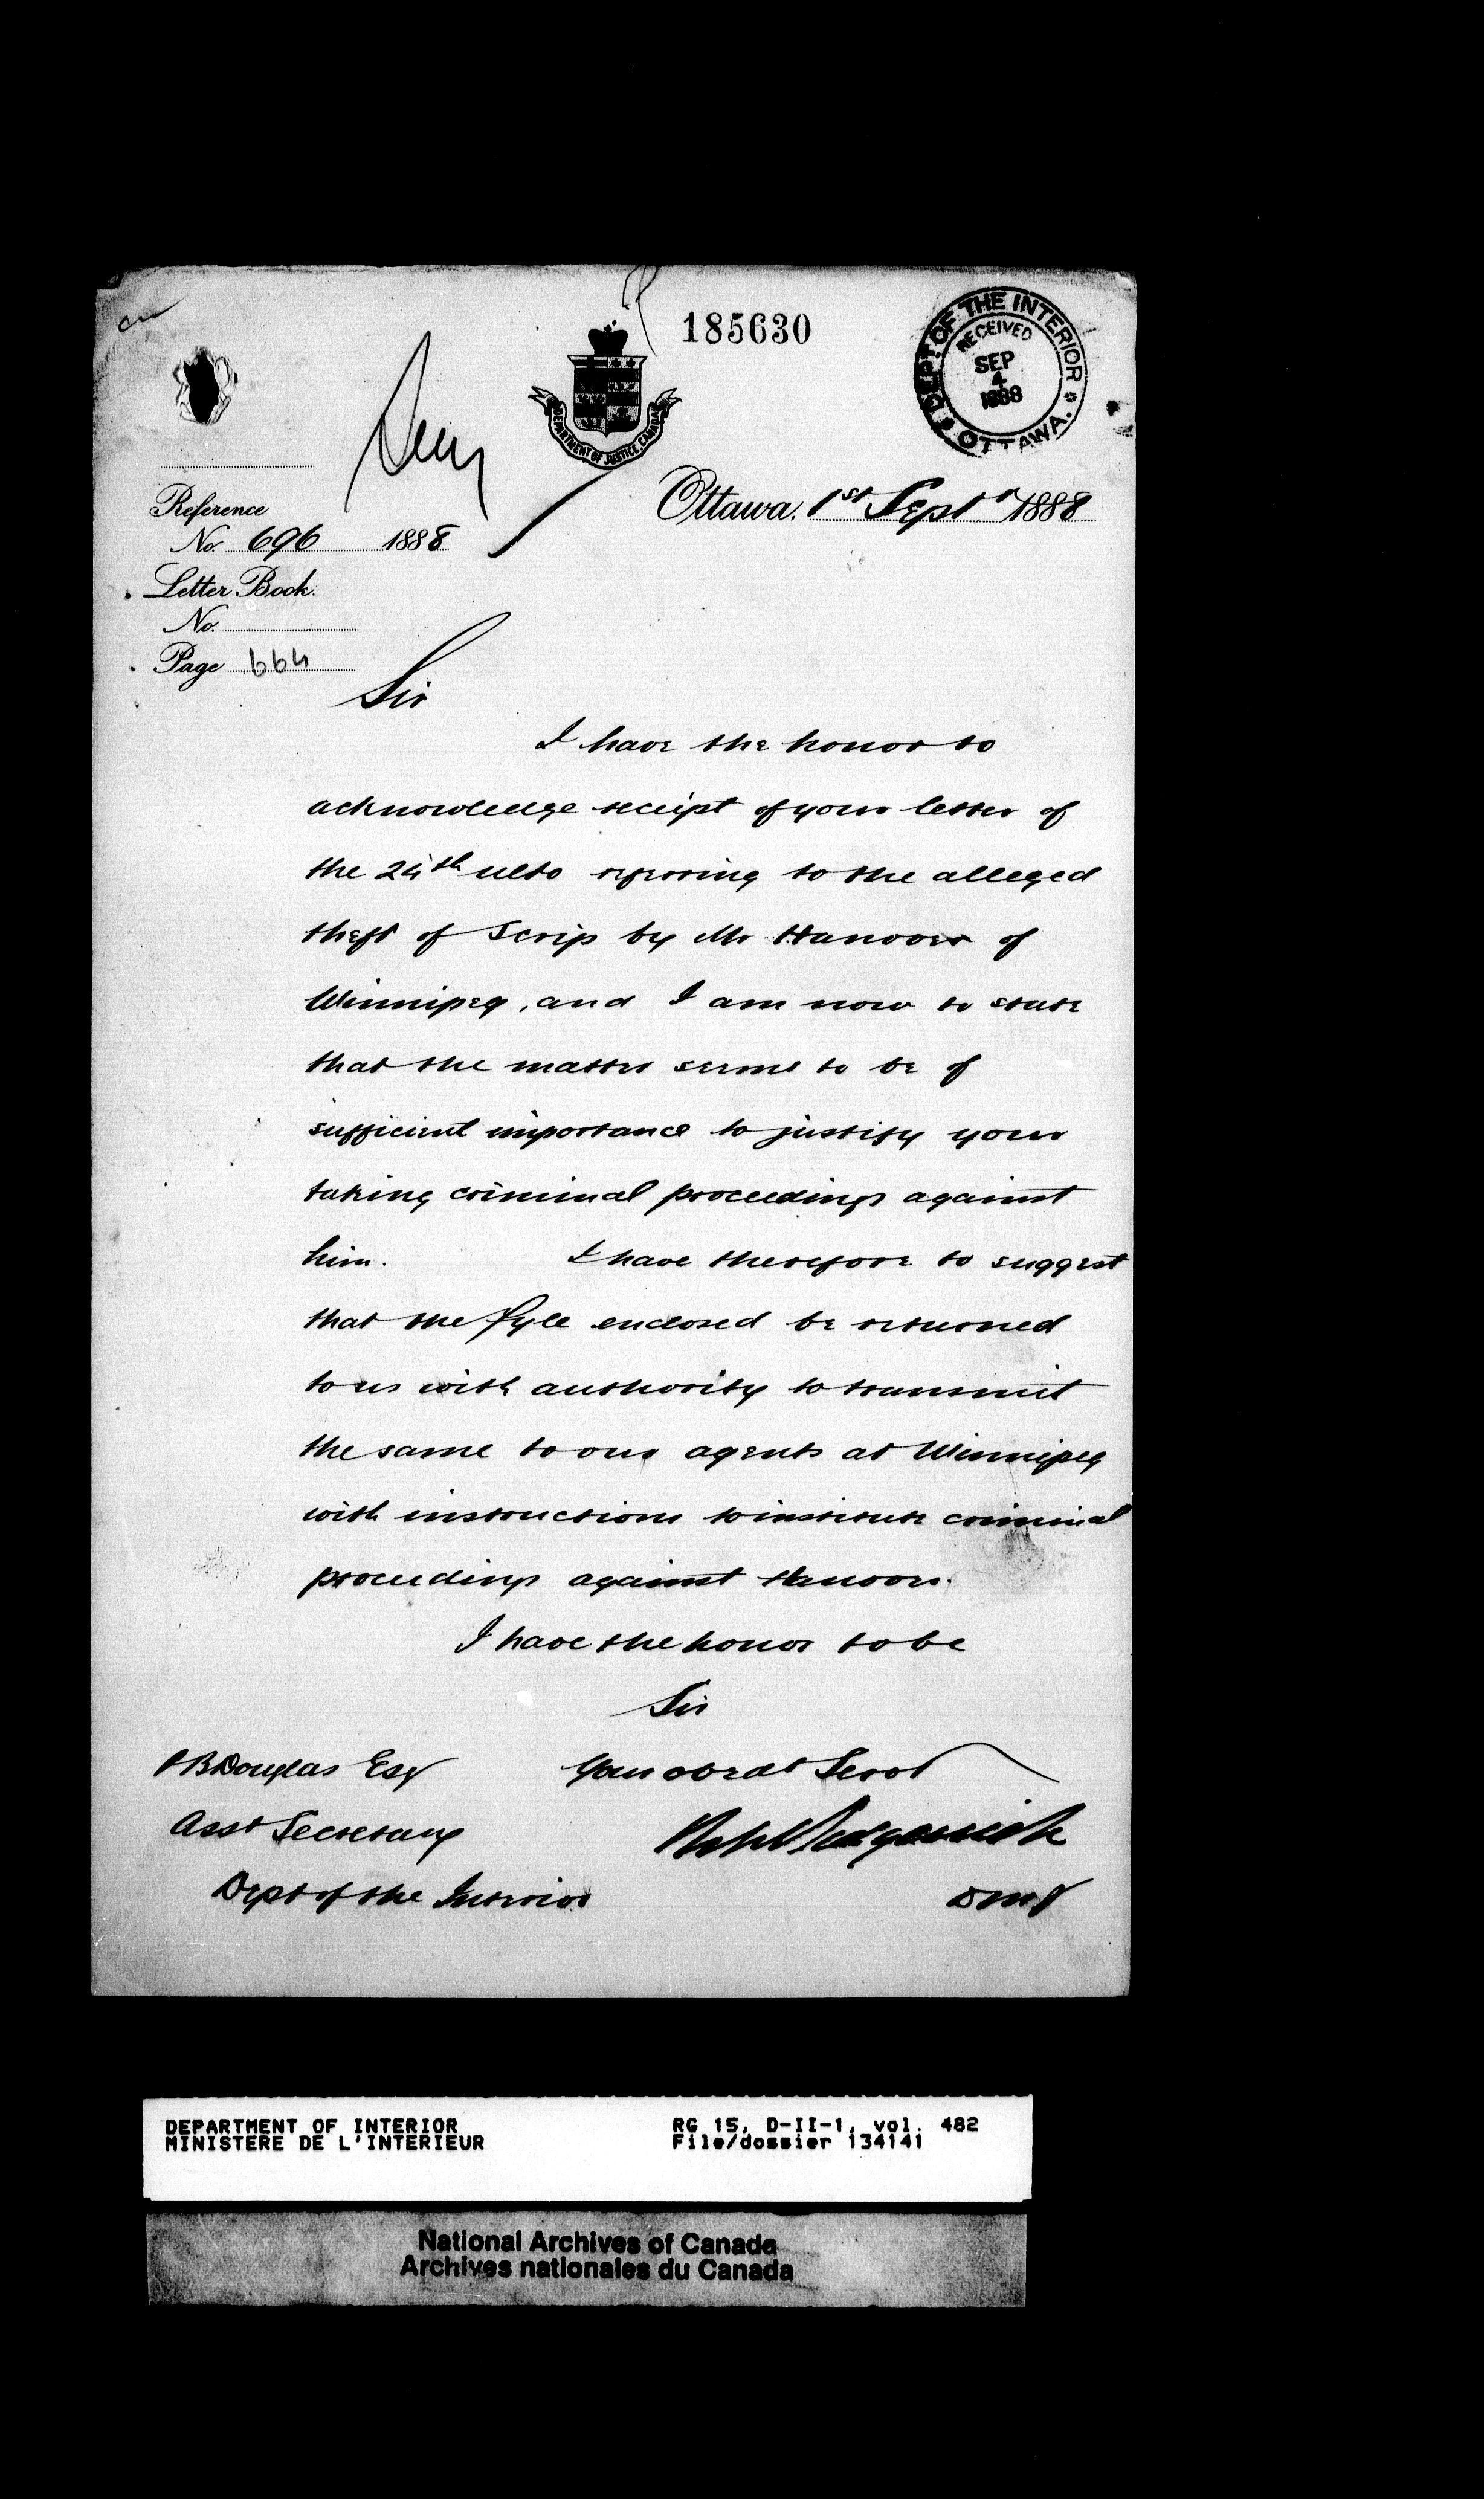 185630
DEPT. OF THE INTERIOR
RECEIVED
SEP
4
1888
OTTAWA.
DEPARTMENT OF JUSTICE, CANADA
Ottawa. 1st Septr 1888
Reference
No. 696 1888
Letter Book.
No.
Page 664
Sir
I have the honor to
acknowledge receipt of your letter of
the 24th ulto referring to the alleged
theft of Scrip by Mr Hanover of
Winnipeg, and I am now to state
that the matter seems to be of
sufficient importance to justify your
taking criminal proceedings against
him. I have therefore to suggest
that the fyle enclosed be returned
to us with authority to transmit
the same to our agents at Winnipeg
with instructions to institute criminal
proceedings against Hanover.
I have the honor to be
Sir
Your obedt Servt
Sedgewick
DMJ
P B Douglas Esq
Asst Secretary
Dept of the Interior
DEPARTMENT OF INTERIOR
MINISTERE DE L'INTERIEUR
RG 15, D-II-1, vol. 482
File/dossier 134141
National Archives of Canada
Archives nationales du Canada